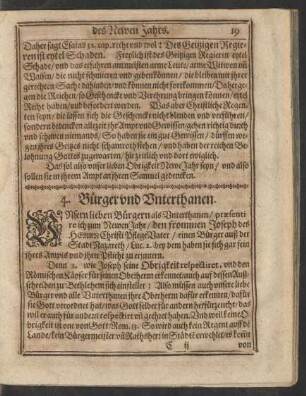 des Newen Jahrs. 19
Daher sagt Esaias 32. cap. recht vnd wol: Des Geitzigen Regie-
ren ist eytel Schaden. Freylich ist des Geitzigen Regieren eytel
Schade / vnd das erfahren am meisten arme Leute / arme Witwen vñ
Waisen / die nicht schmieren vnd geben können / die bleiben mit ihrer
gerechten Sach dahinden / vnd können nicht fortkommen / Dagegen
die Reichen so Geschenck vnd Verehrung bringen können /
Recht haben / vnd befördert werden. Was aber Christliche Regen-
ten seyn / die lassen sich die Geschencke nicht blenden vnd verführen /
sondern dencken allezeit ihr Ampt vnd Gewissen gehen richtig durch
vnd schonen niemand / So haben sie ein gut Gewissen / dürffen we-
gen ihres Geitzes nicht schamroth stehen / vnd haben der reichen Be-
lohnung Gottes zugewarten / hie zeitlich vnd dort ewiglich.
Das sol also vnser lieben Obrigkeit Newe Jahr seyn / vnd also
sollen sie in ihrem Ampt an ihren Samuel gedencken.
4. Bürger vnd Vnterthanen.
VNsern lieben Bürgern als Vnterthanen / præsenti-
re ich zum Newen Jahr / den frommen Joseph des
HErrn Christi PflegeVater / einen Bürger auß der
Stadt Nazareth / Luc. 2. bey dem haben sie sich gar fein
ihres Ampts vnd ihrer Pflicht zu erinnern.
Denn 1. wie Joseph seine Obrigkeit respectiret, vnd den
Römischen Käyser für seinen Oberherrn erkennet / auch auff dessen Auß-
schreiben zu Bethlehem sich einstellet: Also müssen auch vnsere liebe
Bürger vnd alle Vnterthanen ihre Oberherrn dafür erkennen / dafür
sie Gott verordnet hat / was Gott selber für andern herfür zeucht / das
wil er auch für andern respectiret vñ geehret haben. Vnd weil keine O-
brigkeit ist one von Gott / Rom. 13. So wird auch kein Regent auff de
Lande / kein Bürgermeister vñ Rathsherr in Städtē erwehlet / es kom̃
C ij von